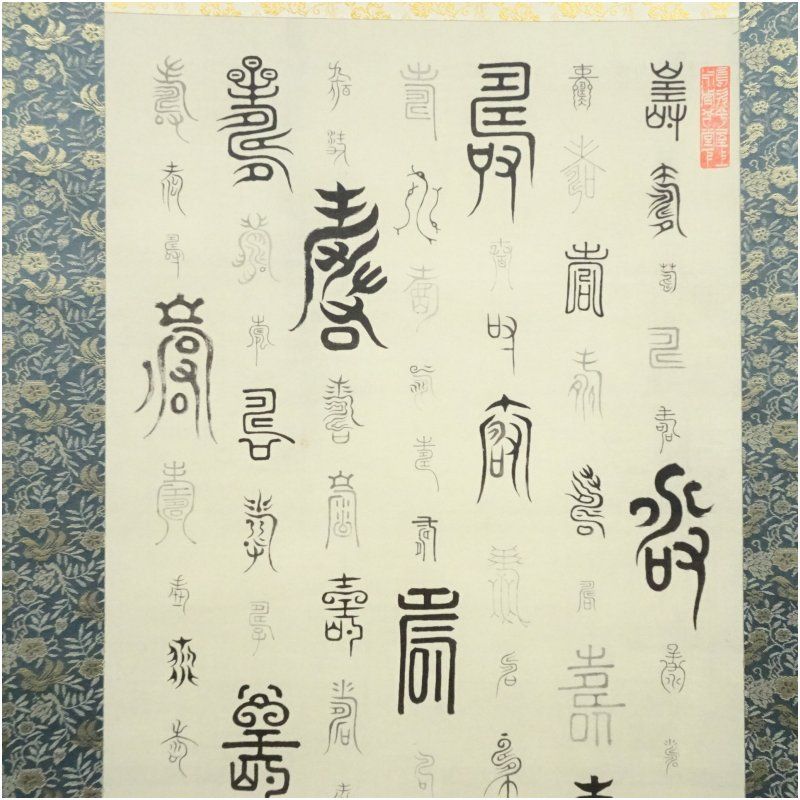 壽壽壽壽壽壽壽壽
壽壽壽壽壽壽壽
壽壽壽壽壽壽壽
壽壽壽壽壽壽壽壽
壽壽壽壽壽壽壽
壽壽壽壽壽壽壽
壽壽壽壽壽壽壽壽